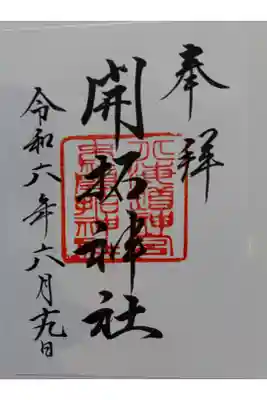 奉拝
開拓神社
令和六年六月十九日
北海道神宮